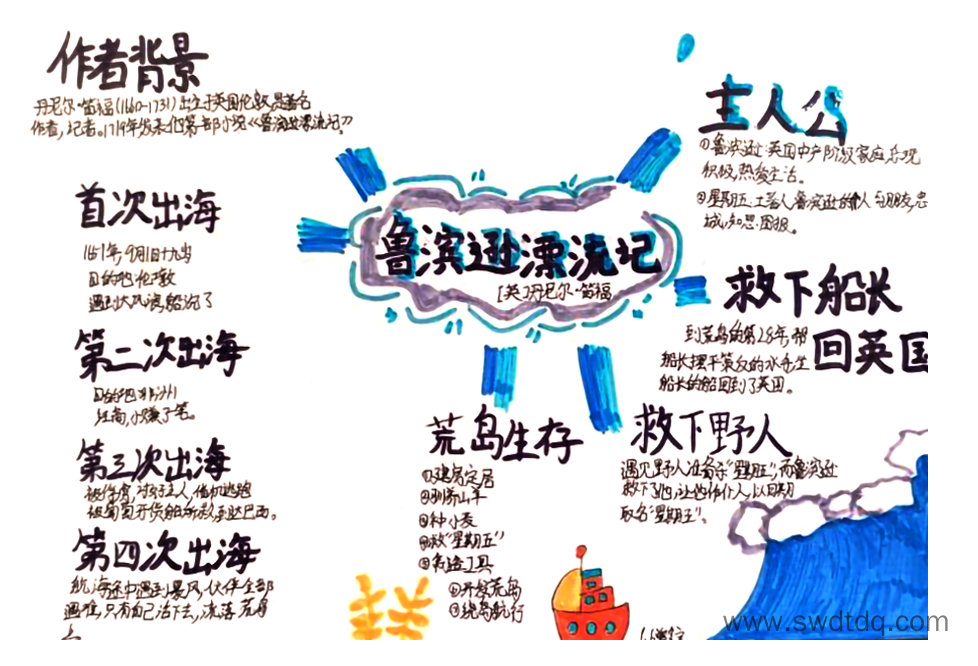 作者背景
丹尼尔·笛福(1660-1731)出生于英国伦敦,是著名
作者,记者。1719年发表他第一部小说《鲁滨逊漂流记》。
首次出海
1651年,9月1日十九岁
目的地伦敦
遇到大风浪,船沉了
第二次出海
目的地非洲
经商,小赚了笔。
第三次出海
被俘虏,
被葡萄牙货船所救到达巴西。
第四次出海
航海途中遇到暴风,伙伴全部
遇难,只有自己活下去,流落荒
岛
鲁滨逊漂流记
[英]丹尼尔·笛福
主人公
①鲁滨逊:英国中产阶级家庭,乐观
积极,热爱生活。
②星期五:土著人,鲁滨逊的仆人与朋友,忠
诚,知恩图报。
救下船长
回英国
到荒岛的第28年,帮
船长摆平策反的水手,坐
船长的船回到了英国。
荒岛生存
①建房定居
②驯养山羊
③种小麦
④救“星期五”
⑤制造工具
⑥开发荒岛
⑦绕岛航行
救下野人
遇见野人准备杀“星期五”,而鲁滨逊
救下了他,让他作仆人,以日期
取名“星期五”。
www.swdtdq.com